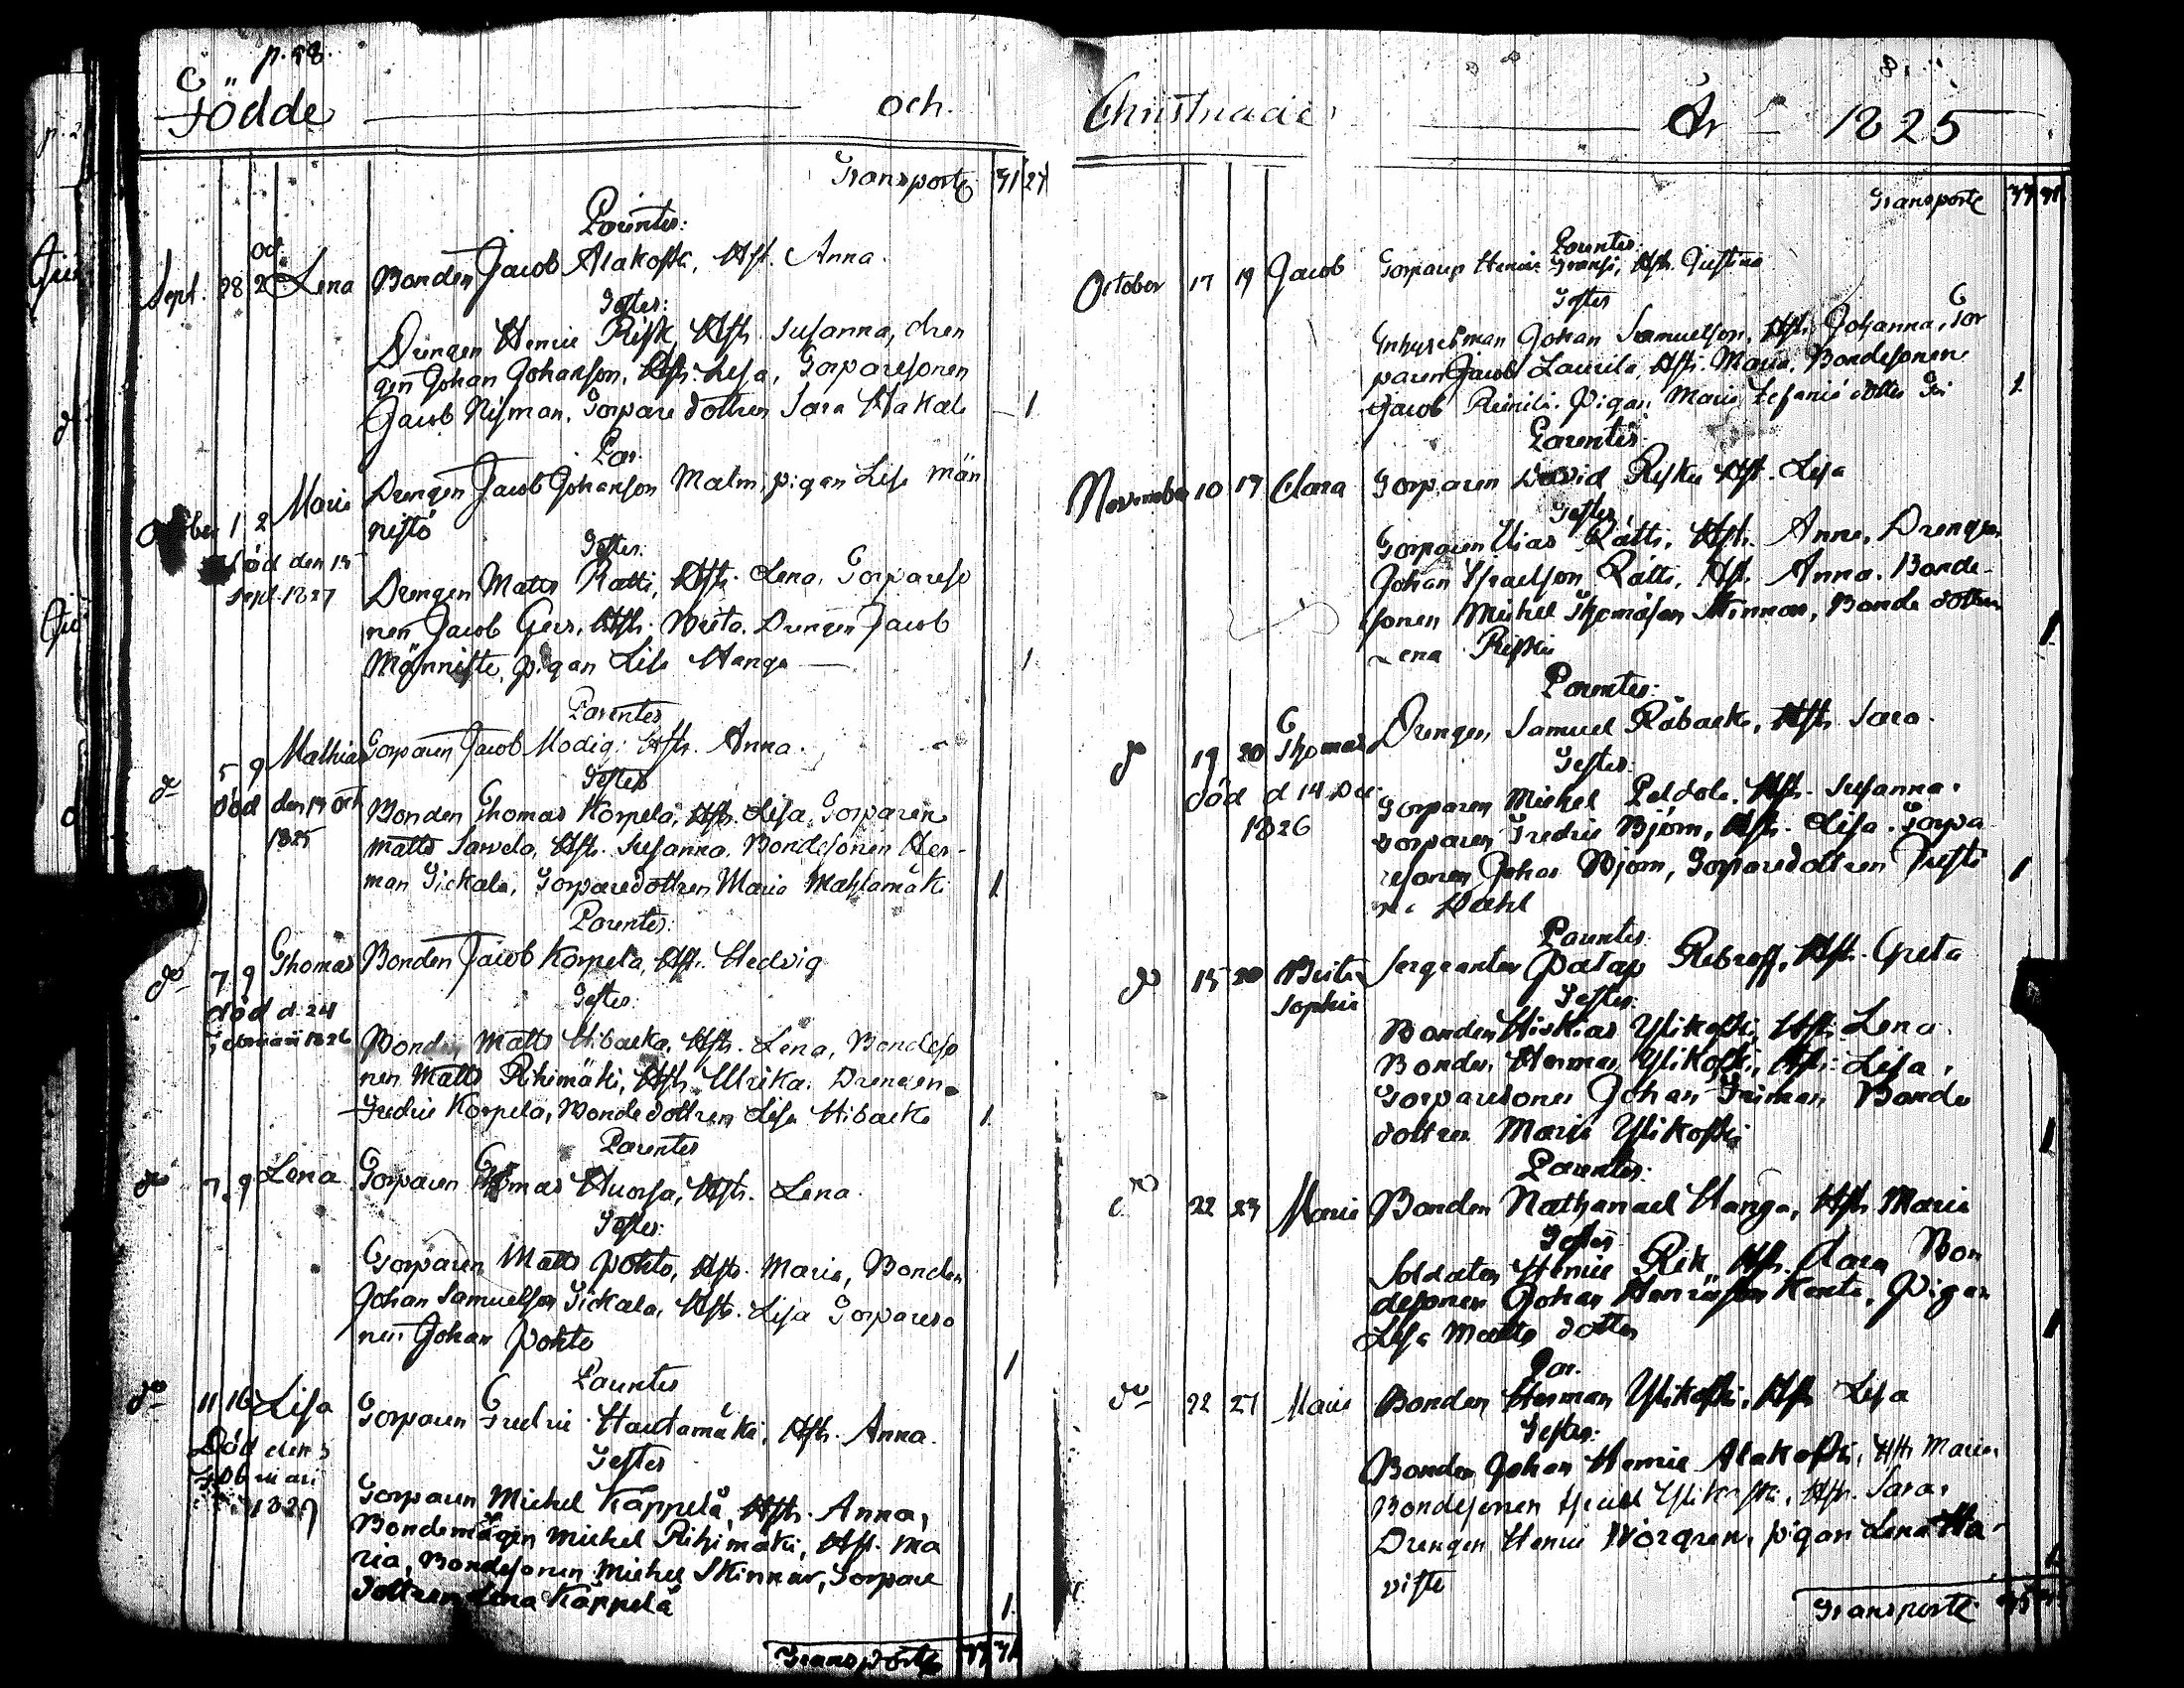 p. 98.
Födde och
Transport 31 27
Parentes:
Sept. 28 Oct. 2 Lena Bonden Jacob Alakoski, Hst. Anna.
Testes:
Drengen Henric Risk, Hstr. Susanna, dren
gen Johan Johanson, Hstr. Lisa, Torparesonen
Jacob Nyman, Torparedottren Sara Hakala — 1
Par.
October 1 2 Maria Drengen Jacob Johanson Malm, pigan Lisa Män
nistö
död den 15
Sept. 1827
Testes:
Drengen Matts Ratti, Hstr. Lena, Torpareso
nen Jacob Geers, Hstr. Brita, Drengen Jacob
Männistö, pigan Lisa Hanga — 1
Parentes
do 5 9 Mathias Torparen Jacob Modig, Hstr. Anna.
död den 14 Oct
1825
Testes
Bonden Thomas Korpela, Hstr. Lisa, Torparen
Matts Sarvela, Hstr. Susanna, Bondesonen Her-
man Tickala, Torparedottren Maria Mahlamäki 1
Parentes:
do 7 9 Thomas Bonden Jacob Korpela, Hstr. Hedvig
död d. 24
Februarii 1826
Testes:
Bonden Matts Hibacka, Hstr. Lena, Bondeso
nen Matts Rihimäki, Hstr. Ulrika, Drengen
Fredric Korpela, Bondedottren Lisa Hibacka 1
Parentes
do 7 9 Lena Torparen Thomas Huorsa, Hstr. Lena.
Testes:
Torparen Matts Pohto, Hstr. Maria, Bonden
Johan Samuelson Tickala, Hstr. Lisa Torpareso
nen Johan Pohto 1
Parentes
do 11 16 Lisa Torparen Fredric Hautamäki, Hstr. Anna.
Död den 5
Februari
1827
Testes
Torparen Michel Käppelä, Hstr. Anna,
Bondemågen Michel Rihimäki, Hstr. Ma
ria, Bondesonen Michel Skinnar, Torpare
dottren Lena Käppelä 1
Transport
Christnade År 1825
Transport
Parentes:
October 17 19 Jacob Torparen Henric Hst. Justina
Testes
Inhysesman Johan Samuelson, Hstr. Johanna, Tor
paren Jacob Laurila, Hstr. Maria, Bondesonen
Jacob Pigan Maria dotter 1
Parentes
November 10 17 Clara Torparen David Risku Hst. Lisa
Testes
Torparen Elias Rätti, Hstr. Anna, Drengen
Johan Israelson Rätti, Hst. Anna. Bonde-
sonen Michel Thomason Skinnar, Bonde dottren
Lena Risku 1
Parentes:
do 19 20 Thomas Drengen Samuel Råbacka, Hstr Sara.
död d 14 Dec.
1826
Testes:
Torparen Michel Peldola, Hstr. Susanna,
Torparen Fredric Björn, Hstr. Lisa. Torpa
resonen Johan Björn, Torparedottren Justi
na Dahl 1
Parentes
do 15 20 Brita Sophia Sergeanten Patap Rebroff, Hstr. Greta
Testes:
Bonden Hiskias Ylikoski, Hstr. Lena.
Bonden Herman Ylikoski, Hstr. Lisa,
Torparesonen Johan Friman Bonde
dottren Maria Ylikoski 1
Parentes:
do 22 23 Maria Bonden Nathanael Hanga, Hstr. Maria
Testes
Soldaten Henric Rik Hstr. Clara Bon
desonen Johan Henricson Kenta, Pigan
Lisa Matts dotter 1
Par.
do 22 27 Maria Bonden Herman Ylikoski, Hstr Lisa
Testes:
Bonden Johan Henric Alakoski, Hstr Maria
Bondesonen Israel Ylikoski, Hstr. Sara,
Drengen Henric Norgren, pigan Lena Ha-
visto 1
Transport